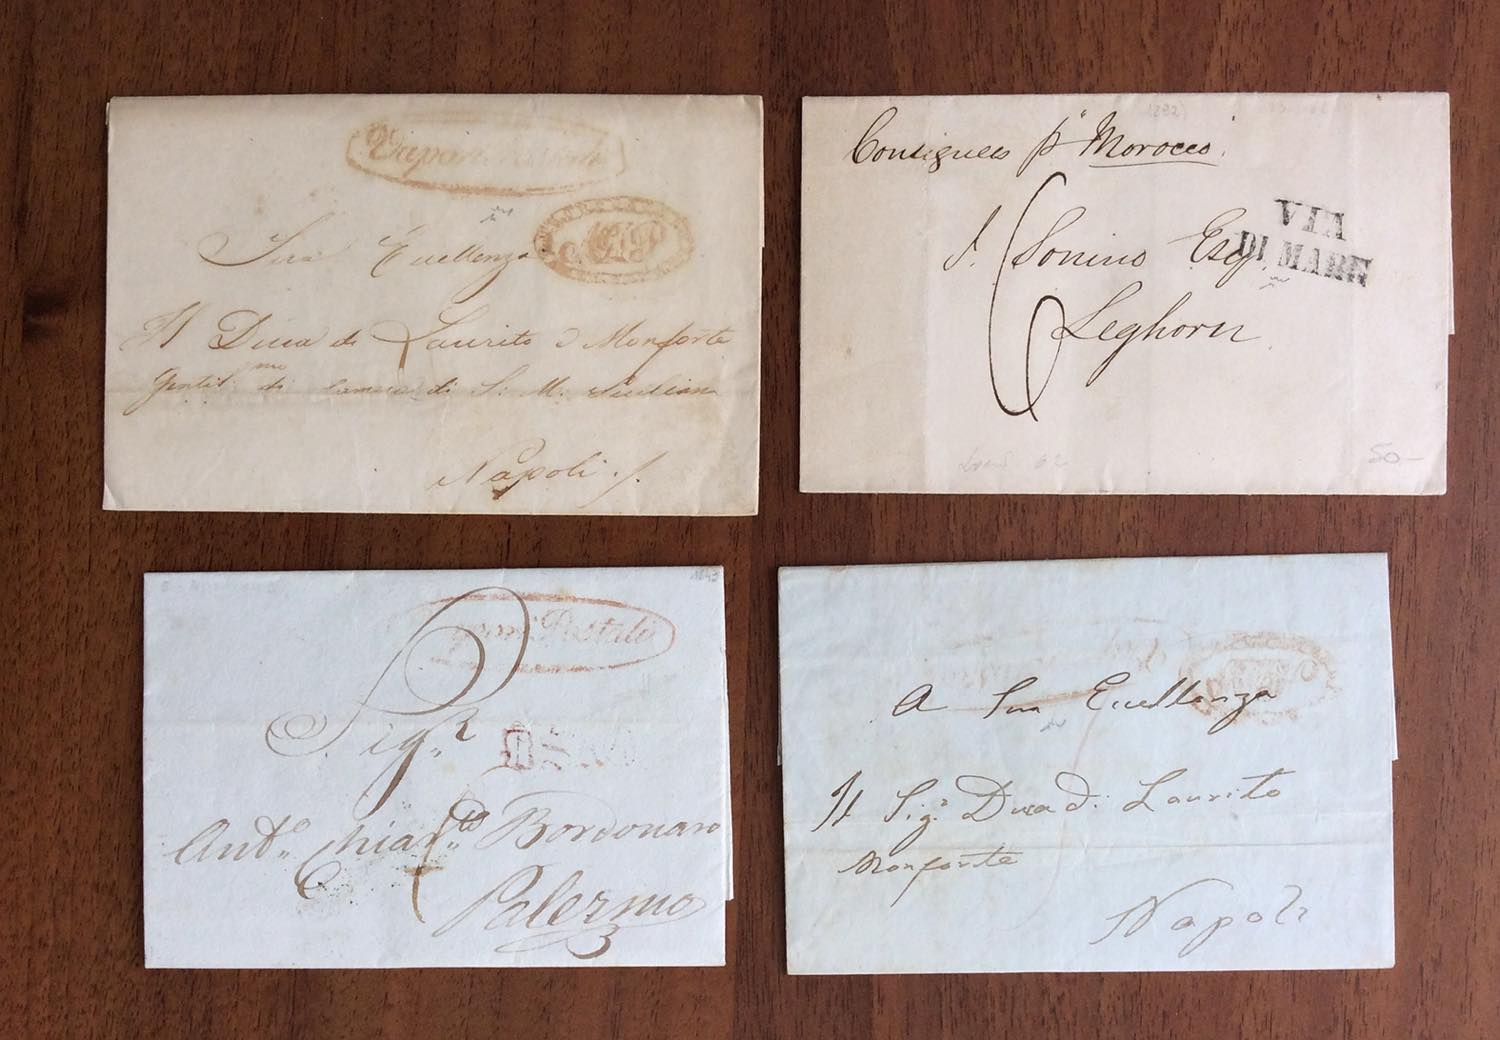 Vapori Postali
Sua Eccellenza
Il Duca di Laurito e Monforte
Gentil mo di Camera di S. M. Siciliana
Napoli
Consignees p "Morocco"
VIA
DI MARE
S. Sonino Esq.
6
Leghorn
50-
1843
Postali
Sig.r
Ant.o Chiar. Bordonaro
Palermo
A Sua Eccellenza
Il Sig. Duca di Laurito
Monforte
Napoli